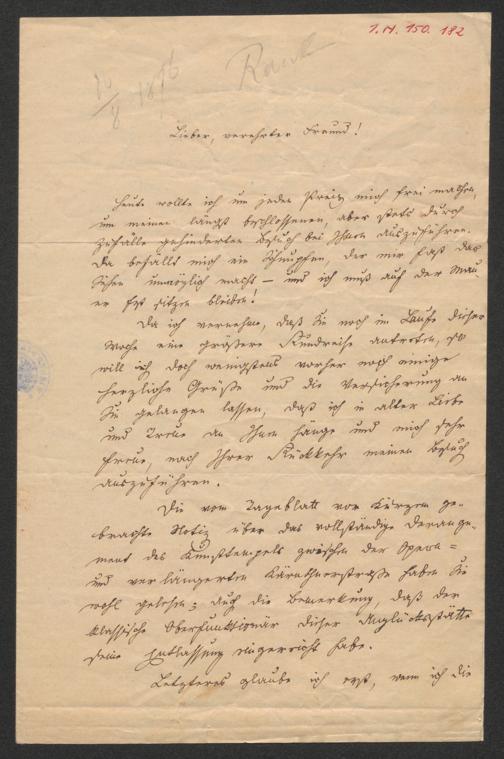 I.N. 150.182
10/8 1876
Lieber, verehrter Freund!
Heute wollte ich um jeden Preis mich frei machen,
um meinen längst beschlossenen, aber stets durch
Zufälle gehinderten Besuch bei Ihnen auszuführen.
Da befällt mich ein Schnupfen, der mir fast das
Sehen unmöglich macht – und ich muß auf der Mau
er fest sitzen bleiben!
Da ich vernehme, daß Sie noch im Laufe dieser
Woche eine größere Rundreise antreten, so
will ich doch wenigstens vorher noch einige
herzliche Grüße und die Versicherung an
Sie gelangen lassen, daß ich in alter Liebe
und Treue an Ihnen hänge und mich sehr
freue, nach Ihrer Rückkehr meinen Besuch
auszuführen.
Die vom Tageblatt vor Kurzem ge-
brachte Notiz über das vollständige Derange-
ment des Kunsttempels zwischen der Opern=
und verlängerten Kärnthnerstraße haben Sie
wohl gelesen; auch die Bemerkung, daß der
klassische Oberfunktionär dieser Unglücksstätte
seine Entlassung eingereicht habe.
Letzteres glaube ich erst, wenn ich die